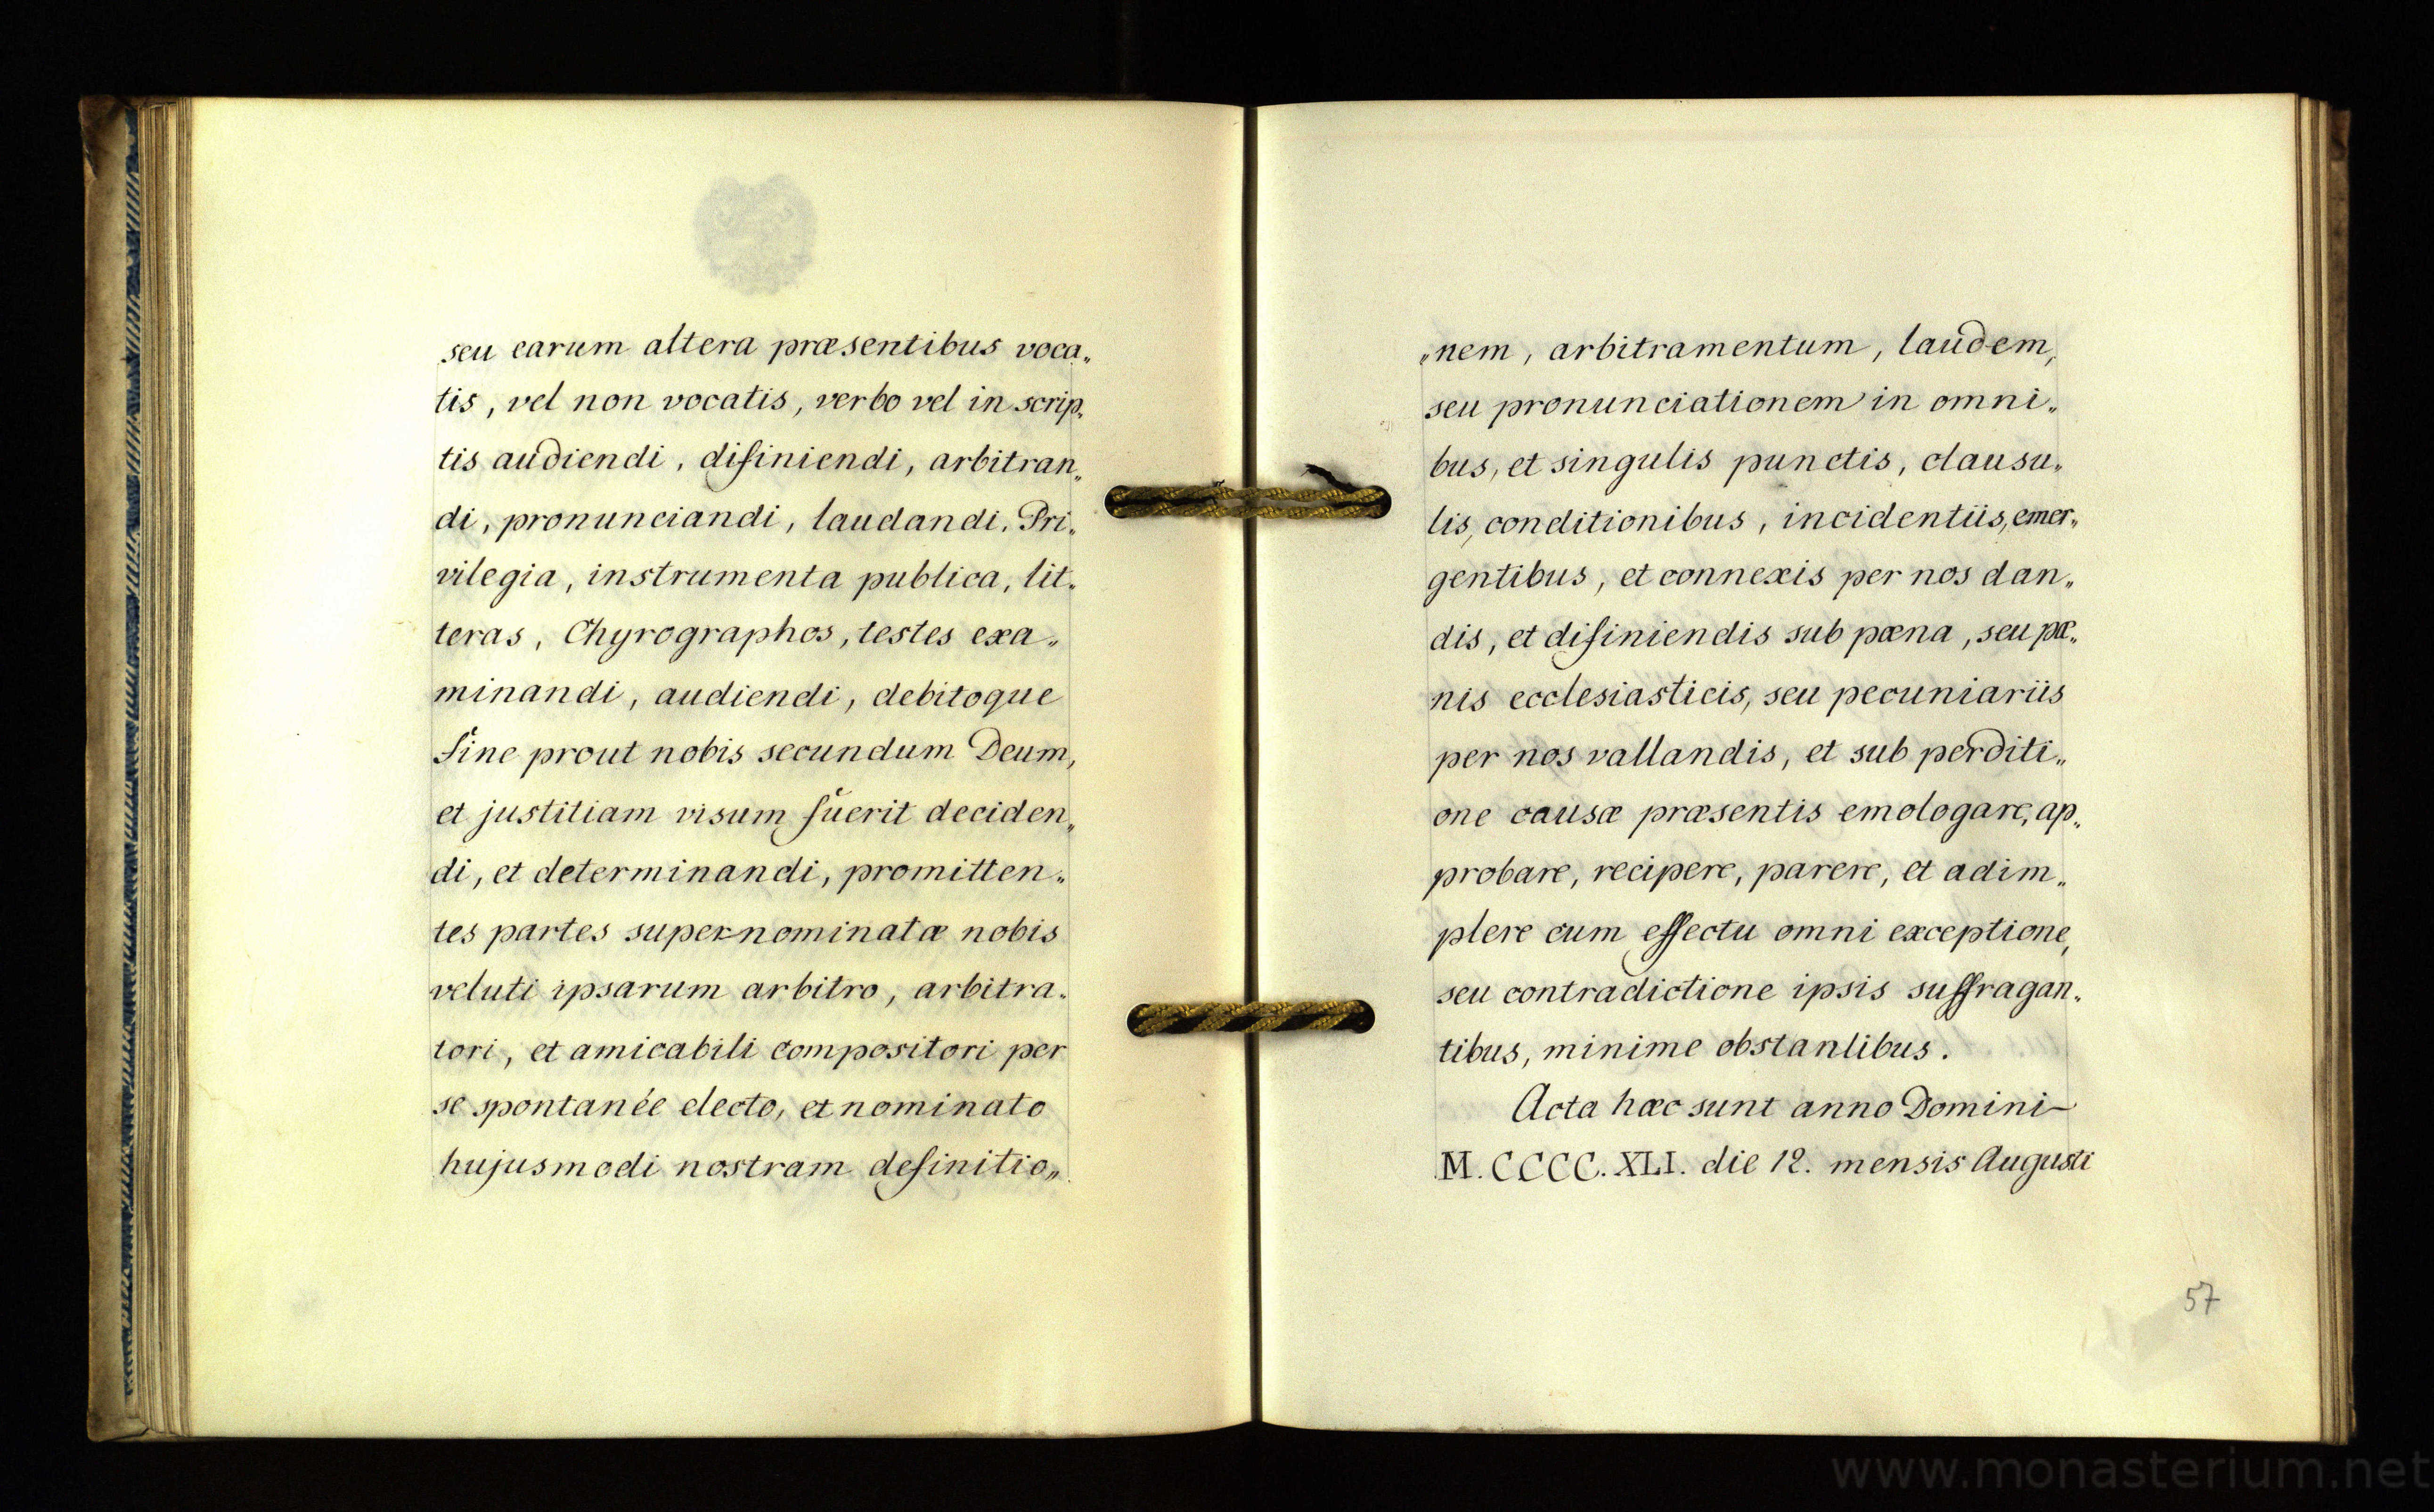 seu earum altera præsentibus voca„
tis, vel non vocatis, verbo vel in scrip„
tis audiendi, difiniendi, arbitran„
di, pronunciandi, laudandi, Pri„
vilegia, instrumenta publica, lit„
teras, Chyrographos, testes exa„
minandi, audiendi, debitoque
fine prout nobis secundum Deum,
et justitiam visum fuerit deciden„
di, et determinandi, promitten„
tes partes supernominatæ nobis
veluti ipsarum arbitro, arbitra„
tori, et amicabili compositori per
se spontanée electo, et nominato
hujusmodi nostram definitio„
„nem, arbitramentum, laudem,
seu pronunciationem in omni„
bus, et singulis punctis, clausu„
lis, conditionibus, incidentiis, emer„
gentibus, et connexis per nos dan„
dis, et difiniendis sub pœna, seu pœ„
nis ecclesiasticis, seu pecuniariis
per nos vallandis, et sub perditi„
one causæ præsentis emologare, ap„
probare, recipere, parere, et adim„
plere cum effectu omni exceptione,
seu contradictione ipsis suffragan„
tibus, minime obstantibus.
Acta hæc sunt anno Domini
M. CCCC. XLI. die 12. mensis Augusti
57
www.monasterium.net